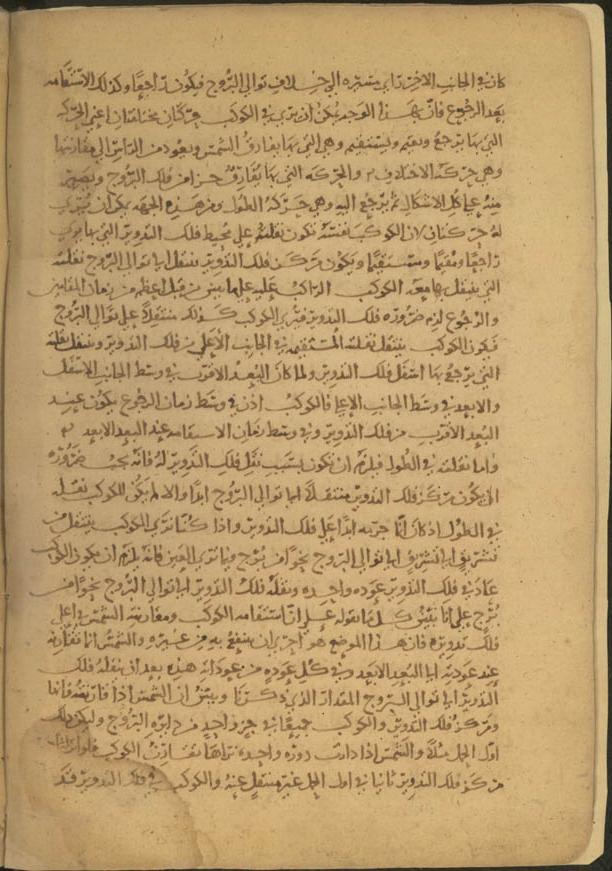 كان في الجانب الاخر راى مسيره الى خلاف توالي البروج فيكون راجعا وكذلك الاستقامه
بعد الرجوع فان بهذا الوجه يمكن ان يرى في الكوكب حركتان مختلفتان اعني الحركه
التي بها يرجع ويقيم ويستقيم وهي التي بها يفارق الشمس ويعود من الراس الى مقارنتها
وهي حركه الاختلاف والحركه التي بها يفارق جزا من فلك البروج ويصير
منه على كل الاشكال ثم يرجع اليه وهي حركه الطول ومن هذه الجهه يمكن ان يرى
له حركتان لان الكوكب نفسه تكون نقلته على محيط فلك التدوير التي بها يرى
راجعا ومقيما ومستقيما ويكون مركز فلك التدوير ينتقل الى توالي البروج نقلته
التي ينتقل بها معه الكوكب الراكب عليه على ما تبين من قبل اعظم من زمان المقابس
والرجوع لزم ضروره فلك التدوير فترى الكوكب كذلك منتقلا على توالي البروج
فيكون الكوكب ينتقل نقلته المستقيمه في الجانب الاعلى من فلك التدوير وينتقل نقلته
التي يرجع بها اسفل فلك التدوير ولما كان البعد الاقرب في وسط الجانب الاسفل
والابعد في وسط الجانب الاعلى فالكوكب اذن في وسط زمان الرجوع يكون عند
البعد الاقرب من فلك التدوير وفي وسط زمان الاستقامه عند البعد الابعد
واما نقلته في الطول فيلزم ان تكون بسبب نقل فلك التدوير له فانه يجب ضروره
ان يكون مركز فلك التدوير منتقلا الى توالي البروج ابدا والا لم يكن للكوكب نقله
في الطول اذ كان انما جريه ابدا على فلك التدوير واذا كنا نرى الكوكب ينتقل من
تشريق الى تشريق الى توالي البروج نحوا من برج وبانرى الحين فانه يلزم ان يكون الكوكب
عاد في فلك التدوير عوده واحده ونقله فلك التدوير الى توالي البروج نحوا من
برج على انا نبين كل ما نقوله على ان استقامه الكوكب ومقارنته الشمس في اعلى
فلك تدويره فان هذا الموضع هو احرى ان ينتفع به من غيره والشمس انما تقارنه
عند عودته الى البعد الابعد وفي كل عوده من عوداته هذه بعد ان ينقله فلك
التدوير الى توالي البروج المقدار الذي ذكرنا وبين ان الشمس اذا قارنته فانها
ومركز فلك التدوير والكوكب جميعا في جزء واحد من دايره البروج وليكن ذلك
اول الحمل مثلا والشمس اذا دارت دوره واحده نراها تقارن الكوكب فلو
مركز فلك التدوير ثانيا في اول الحمل غير منتقل عنه والكوكب في فلك التدوير قد